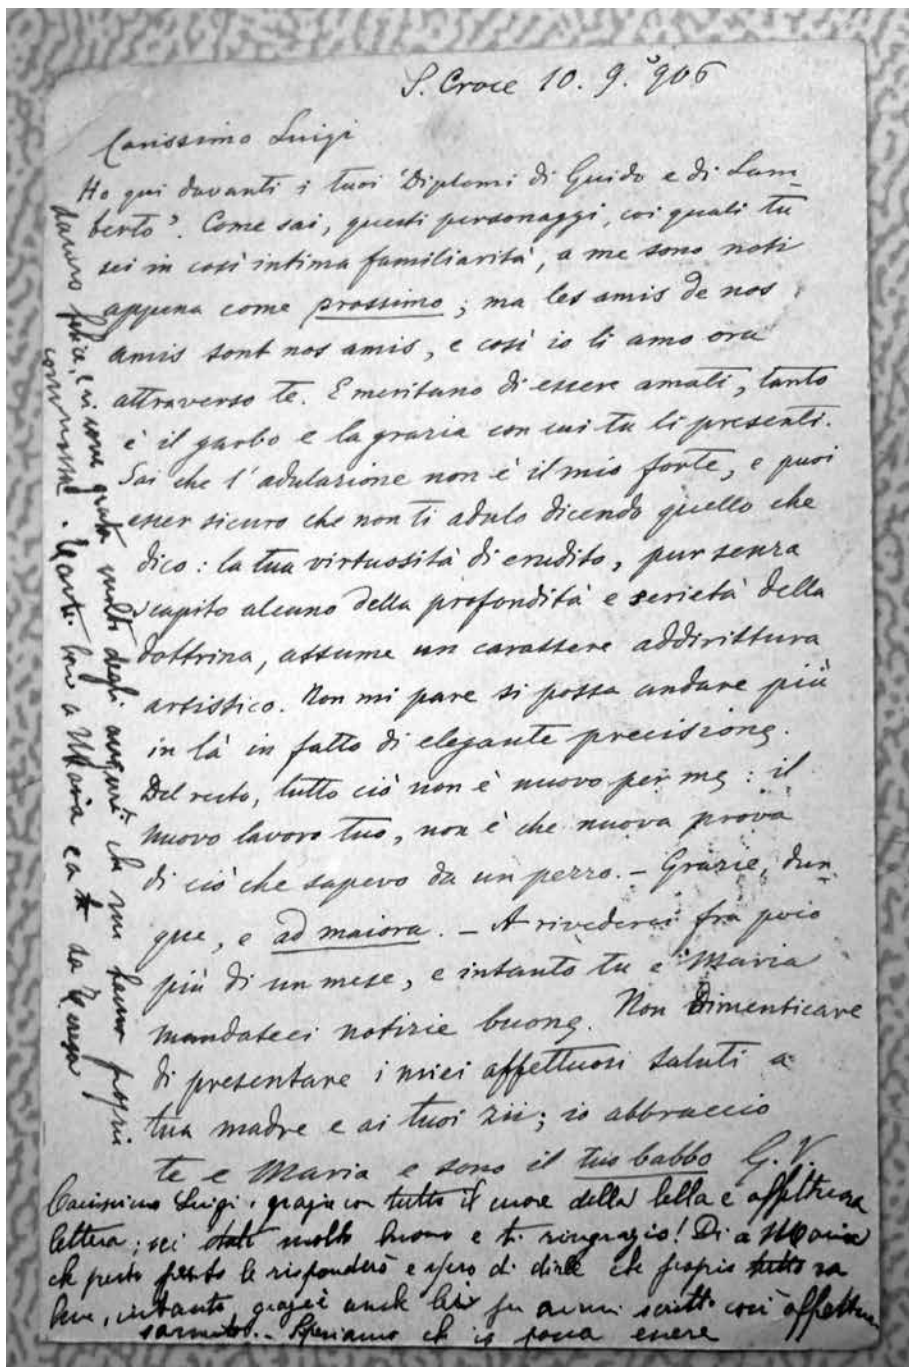 S. Croce 10. 9. 906
Carissimo Luigi
Ho qui davanti i tuoi "Diplomi di Guido e di Lam-
berto". Come sai, questi personaggi, coi quali tu
sei in così intima familiarità, a me sono noti
appena come prossimo; ma les amis de nos
amis sont nos amis, e così io li amo ora
attraverso te. E meritano di essere amati, tanto
è il garbo e la grazia con cui tu li presenti.
Sai che l'adulazione non è il mio forte, e puoi
esser sicuro che non ti adulo dicendo quello che
dico: la tua virtuosità di erudito, pur senza
scapito alcuno della profondità e serietà della
dottrina, assume un carattere addirittura
artistico. Non mi pare si possa andare più
in là in fatto di elegante precisione.
Del resto, tutto ciò non è nuovo per me: il
nuovo lavoro tuo, non è che nuova prova
di ciò che sapevo da un pezzo. - Grazie, dun-
que, e ad maiora. - A rivederci fra poco
più di un mese, e intanto tu e Maria
mandateci notizie buone. Non dimenticare
di presentare i miei affettuosi saluti a
tua madre e ai tuoi zii; io abbraccio
te e Maria e sono il tuo babbo G. V.
Carissimo Luigi, grazie con tutto il cuore della bella e affettuosa
lettera; sei stato molto buono e ti ringrazio! Di a Maria
che presto presto le risponderò e spero di dirle che proprio tutto va
bene, intanto, grazie anche lei per avermi scritto così affettuo
samente. - Speriamo che io possa essere
davvero felice, e vi sono grata molto degli auguri che mi fanno proprio
commossa. Tante cose a Maria e a te da Teresa